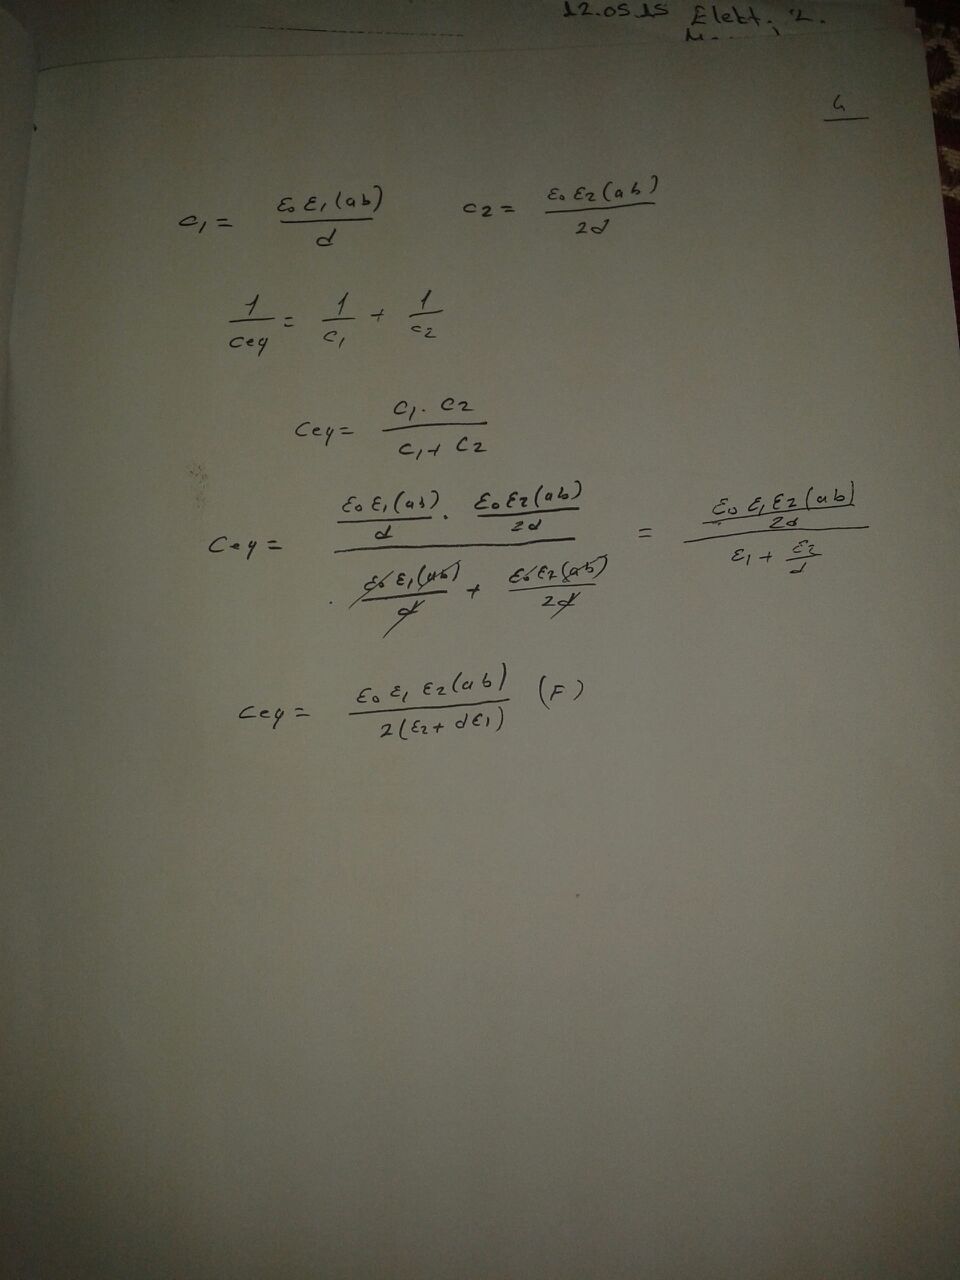 12.05.15 Elekt. 2.
4
c₁ = ε₀ε₁(ab)/d   c₂ = ε₀ε₂(ab)/2d
1/ceq = 1/c₁ + 1/c₂
ceq = c₁ . c₂ / c₁ + c₂
ceq = (ε₀ε₁(ab)/d . ε₀ε₂(ab)/2d) / (ε₀ε₁(ab)/d + ε₀ε₂(ab)/2d) = (ε₀ε₁ε₂(ab)/2d) / (ε₁ + ε₂/d)
ceq = ε₀ε₁ε₂(ab) / 2(ε₂ + dε₁) (F)